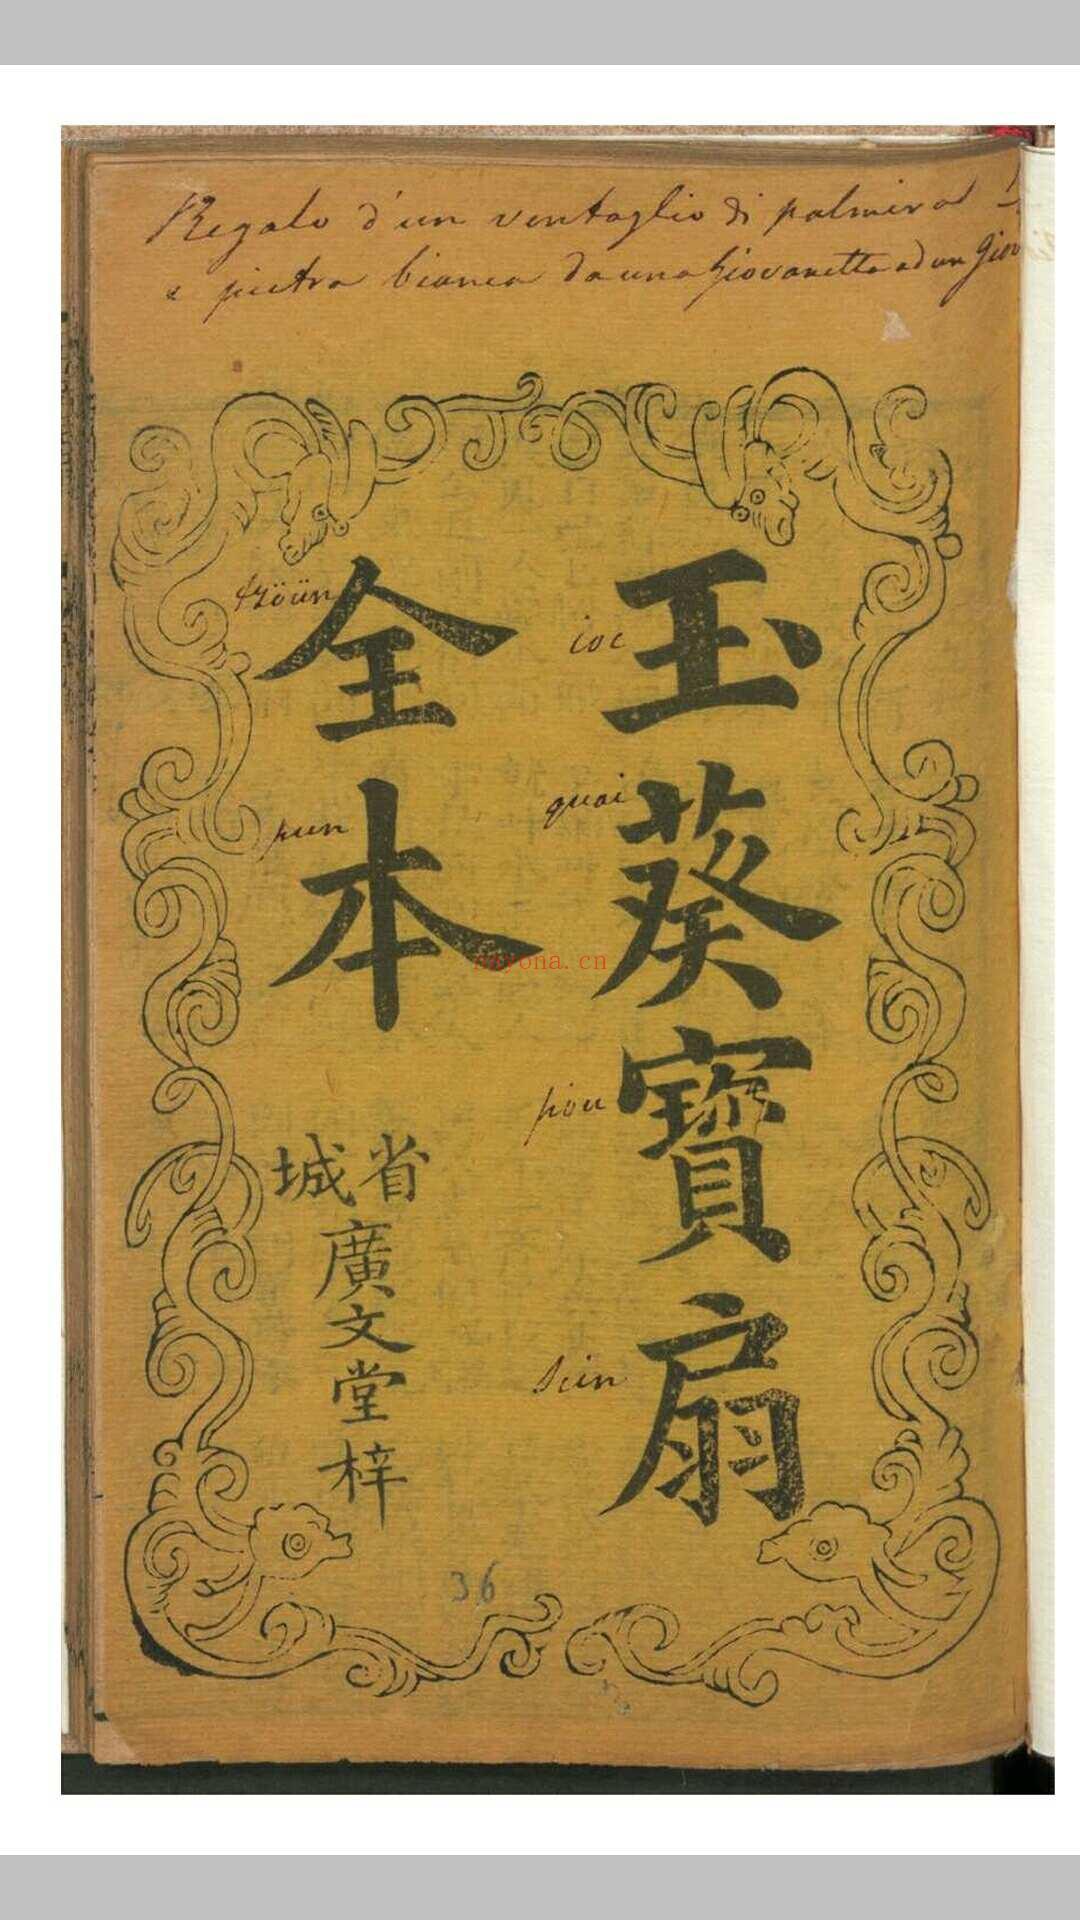 Regalo d'un ventaglio di palmira
e pietra bianca da una giovanetta ad un Giov
玉葵寶扇
ioc
quai
piou
sien
全本
tzöün
pun
省城
廣文堂梓
36
sayona.cn